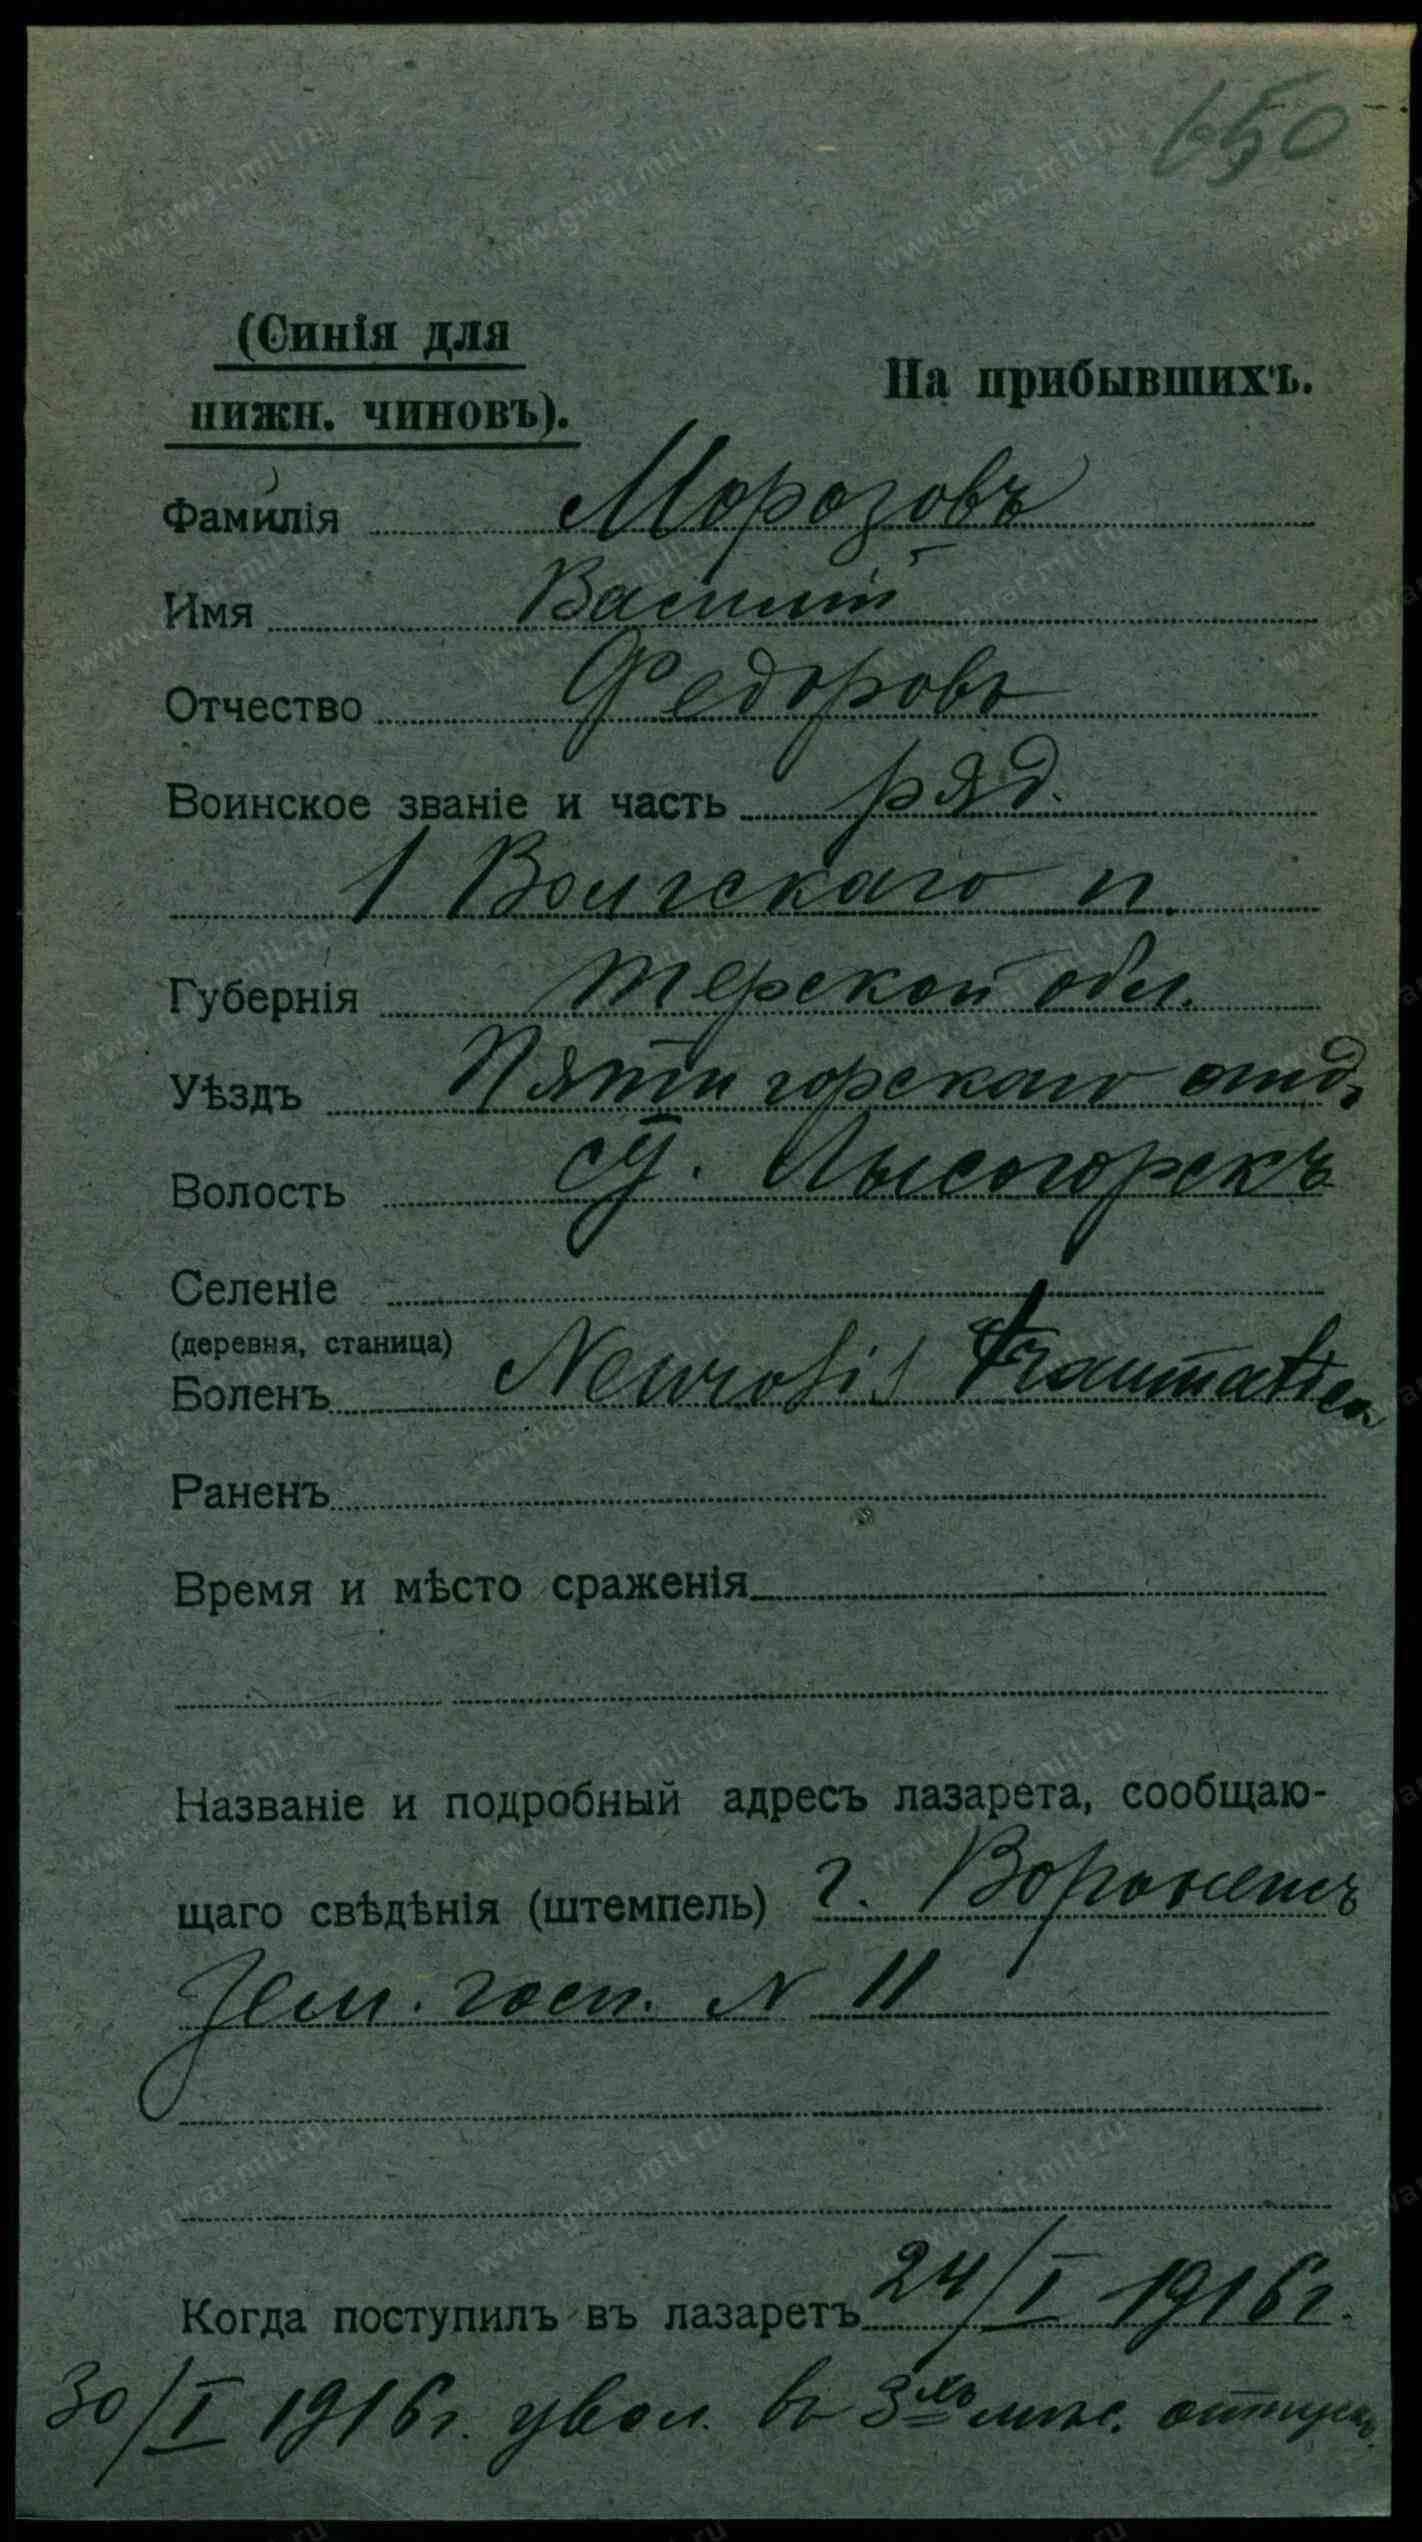 650
(Синія для
На прибывшихъ.
нижн. чиновъ).
Фамилія Морозовъ
Имя Василій
Отчество Федоровъ
Воинское званіе и часть ряд.
1 Волгскаго п.
Губернія Терской обл.
Уѣздъ Пятигорскаго отд.
Волость ст. Лысогорскъ
Селеніе
(деревня, станица)
Боленъ Neurosis traumatica
Раненъ
Время и мѣсто сраженія
Названіе и подробный адресъ лазарета, сообщаю-
щаго свѣдѣнія (штемпель) г. Воронежъ
Зем. госп. N 11
Когда поступилъ въ лазаретъ 24/I 1916 г.
30/I 1916 г. увол. въ 3хъ мѣс. отпускъ